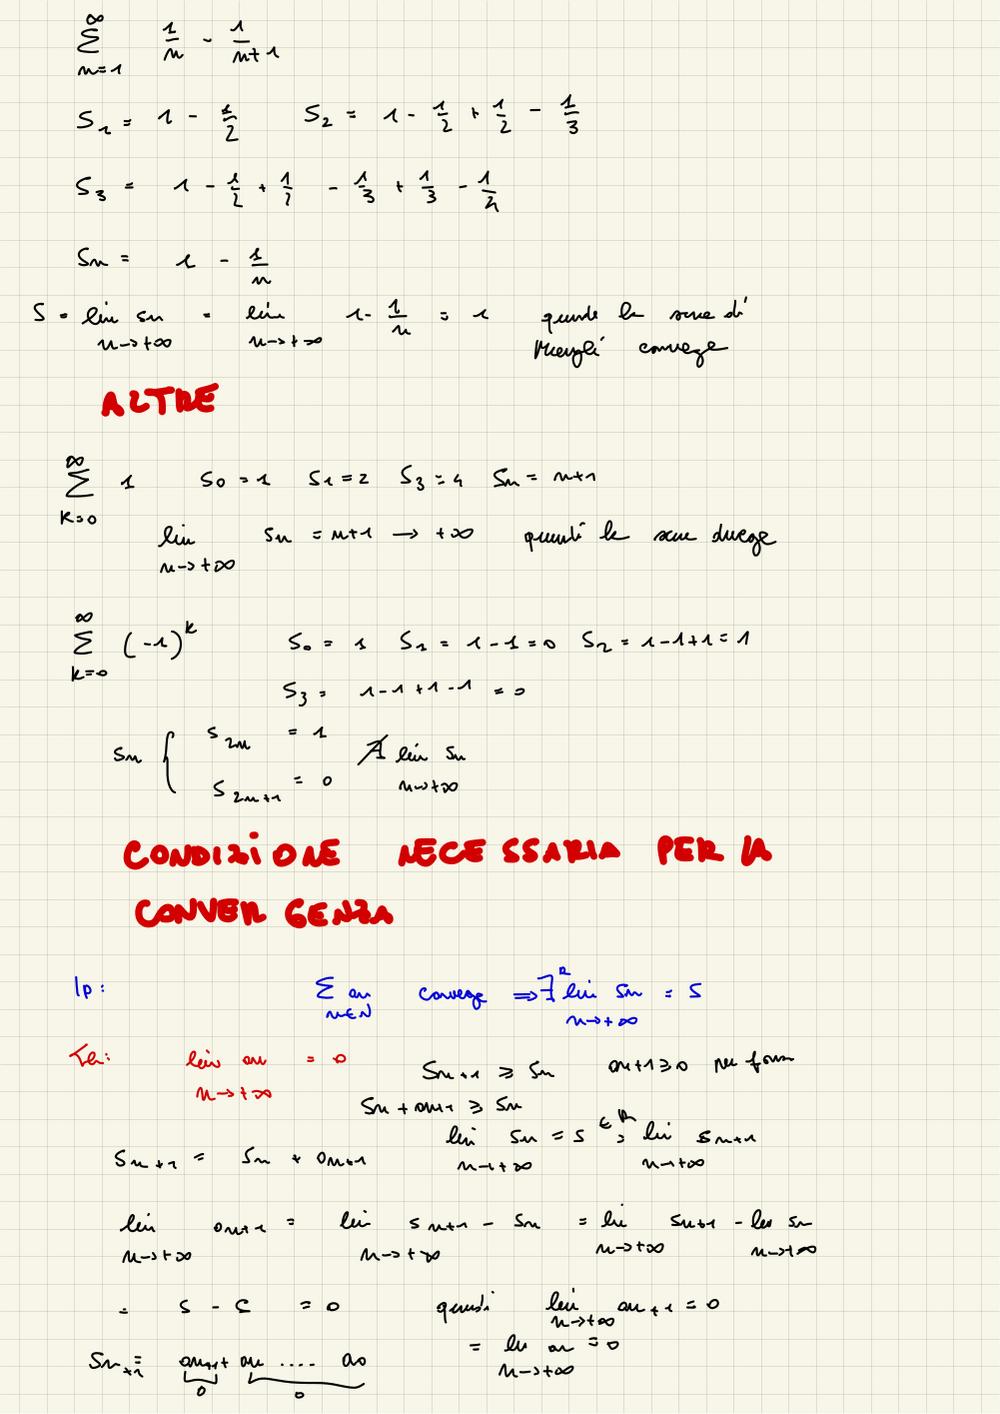 ∞
Σ 1/n - 1/n+1
n=1
S1 = 1 - 1/2 S2 = 1 - 1/2 + 1/2 - 1/3
S3 = 1 - 1/2 + 1/2 - 1/3 + 1/3 - 1/4
Sn = 1 - 1/n
S = lim sn = lim 1 - 1/n = 1 quindi la serie di
n→+∞ n→+∞ Mengoli converge
ALTRE
∞
Σ 1 S0 = 1 S1 = 2 S3 = 4 Sn = n+1
K=0
lim sn = n+1 → +∞ quindi la serie diverge
n→+∞
∞
Σ (-1)^k S0 = 1 S1 = 1-1 = 0 S2 = 1-1+1 = 1
k=0
S3 = 1-1+1-1 = 0
Sn { S2n = 1 ∄ lim Sn
S2n+1 = 0 n→+∞
CONDIZIONE NECESSARIA PER LA
CONVERGENZA
Ip: Σ an converge ⇒ ∃ lim Sn = S
n∈N n→+∞
Th: lim an = 0
n→+∞
Sn+1 ≥ Sn an+1 ≥ 0 per
Sn + an+1 ≥ Sn
lim Sn = S ∈ R lim Sn+1
n→+∞ n→+∞
Sn+1 = Sn + an+1
lim an+1 = lim Sn+1 - Sn = lim Sn+1 - lim Sn
n→+∞ n→+∞ n→+∞ n→+∞
= S - S = 0 quindi lim an+1 = 0
n→+∞
= lim an = 0
n→+∞
Sn+1 = an+1 + an .... a0
0 0